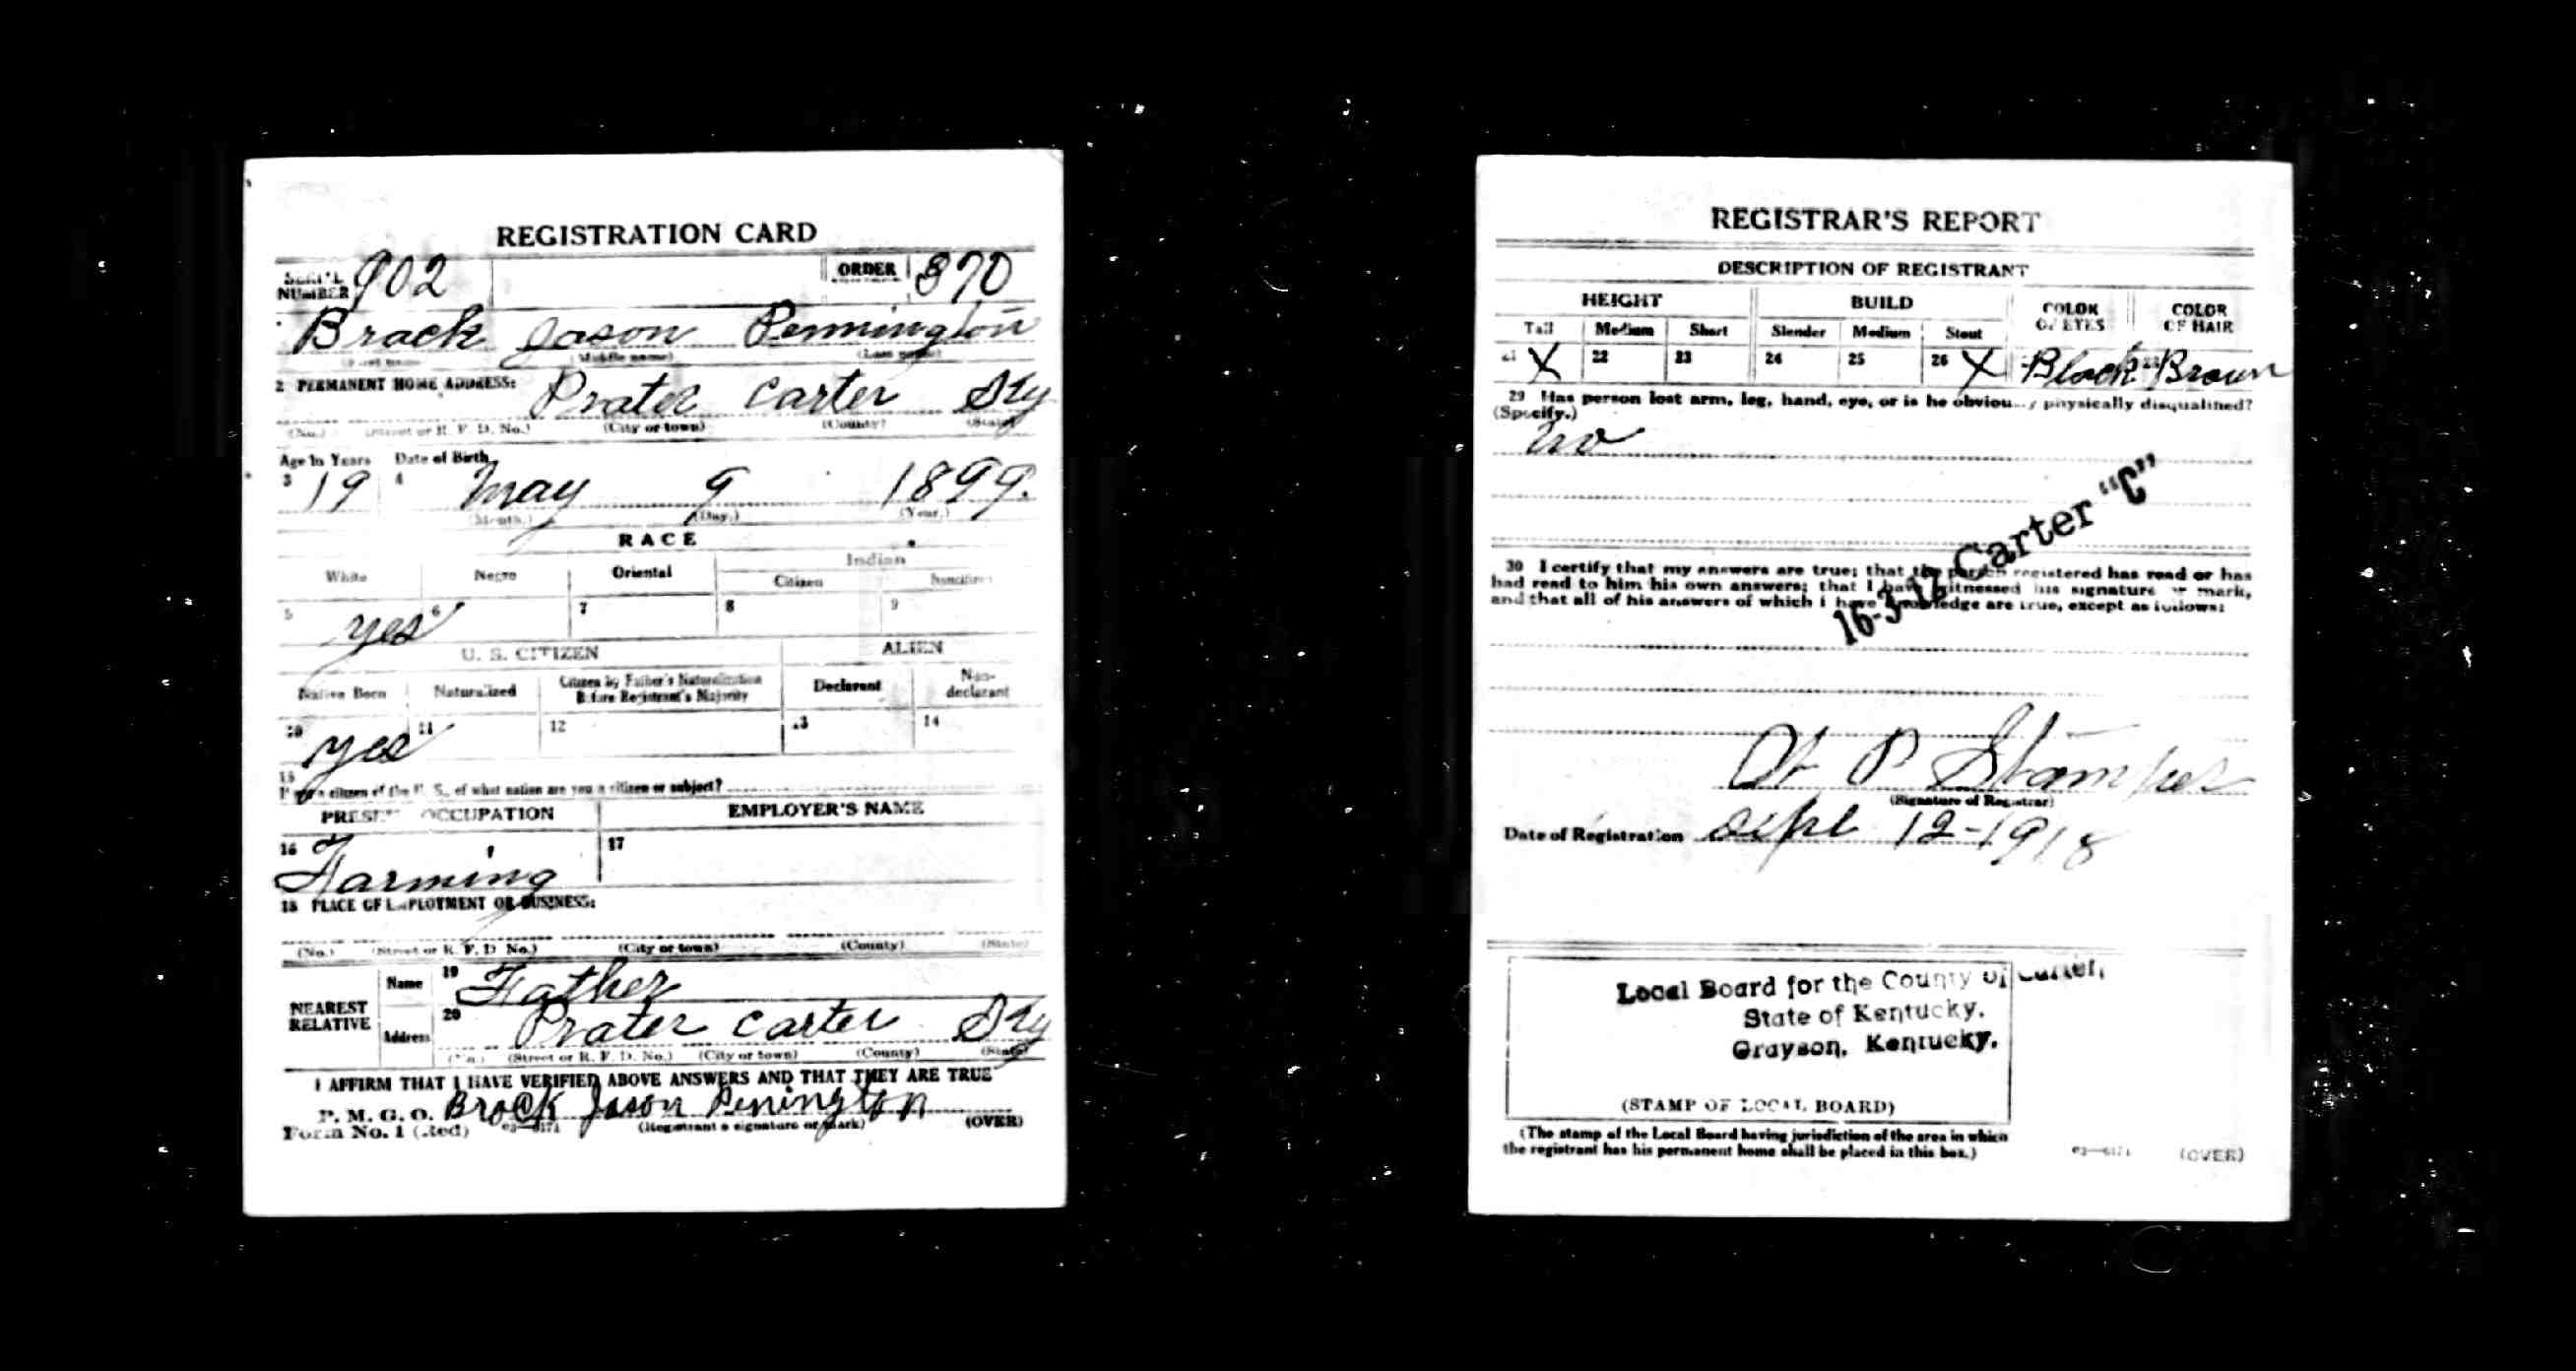 REGISTRATION CARD
SERIAL NUMBER 902 ORDER 870
Brack Jason Pennington
(Middle name) (Last name)
2 PERMANENT HOME ADDRESS:
Prater Carter Ky
(No.) (Street or R. F. D. No.) (City or town) (County) (State)
Age in Years Date of Birth
3 19 4 May 9 1899.
(Month.) (Day.) (Year.)
RACE
White Negro Oriental Indian
Citizen Noncitizen
5 yes 6 7 8 9
U. S. CITIZEN ALIEN
Native Born Naturalized Citizen by Father's Naturalization Before Registrant's Majority Declarant Non-declarant
10 yes 11 12 13 14
15
If not a citizen of the U. S., of what nation are you a citizen or subject?
PRESENT OCCUPATION EMPLOYER'S NAME
16 Farming 17
18 PLACE OF EMPLOYMENT OR BUSINESS:
(No.) (Street or R. F. D. No.) (City or town) (County) (State)
NEAREST RELATIVE Name 19 Father
Address 20 Prater Carter Ky
(No.) (Street or R. F. D. No.) (City or town) (County) (State)
I AFFIRM THAT I HAVE VERIFIED ABOVE ANSWERS AND THAT THEY ARE TRUE
P. M. G. O. Brack Jason Penington
Form No. 1 (Red) (Registrant's signature or mark) (OVER)
REGISTRAR'S REPORT
DESCRIPTION OF REGISTRANT
HEIGHT BUILD COLOR OF EYES COLOR OF HAIR
Tall Medium Short Slender Medium Stout
21 X 22 23 24 25 26 X Black Brown
29 Has person lost arm, leg, hand, eye, or is he obviously physically disqualified?
(Specify.)
no
16-3-12 Carter "C"
30 I certify that my answers are true; that the person registered has read or has
had read to him his own answers; that I have witnessed his signature or mark,
and that all of his answers of which I have knowledge are true, except as follows:
P Stamper
(Signature of Registrar)
Date of Registration Sept 12-1918
Local Board for the County of Carter,
State of Kentucky.
Grayson, Kentucky.
(STAMP OF LOCAL BOARD)
(The stamp of the Local Board having jurisdiction of the area in which
the registrant has his permanent home shall be placed in this box.)
(OVER)